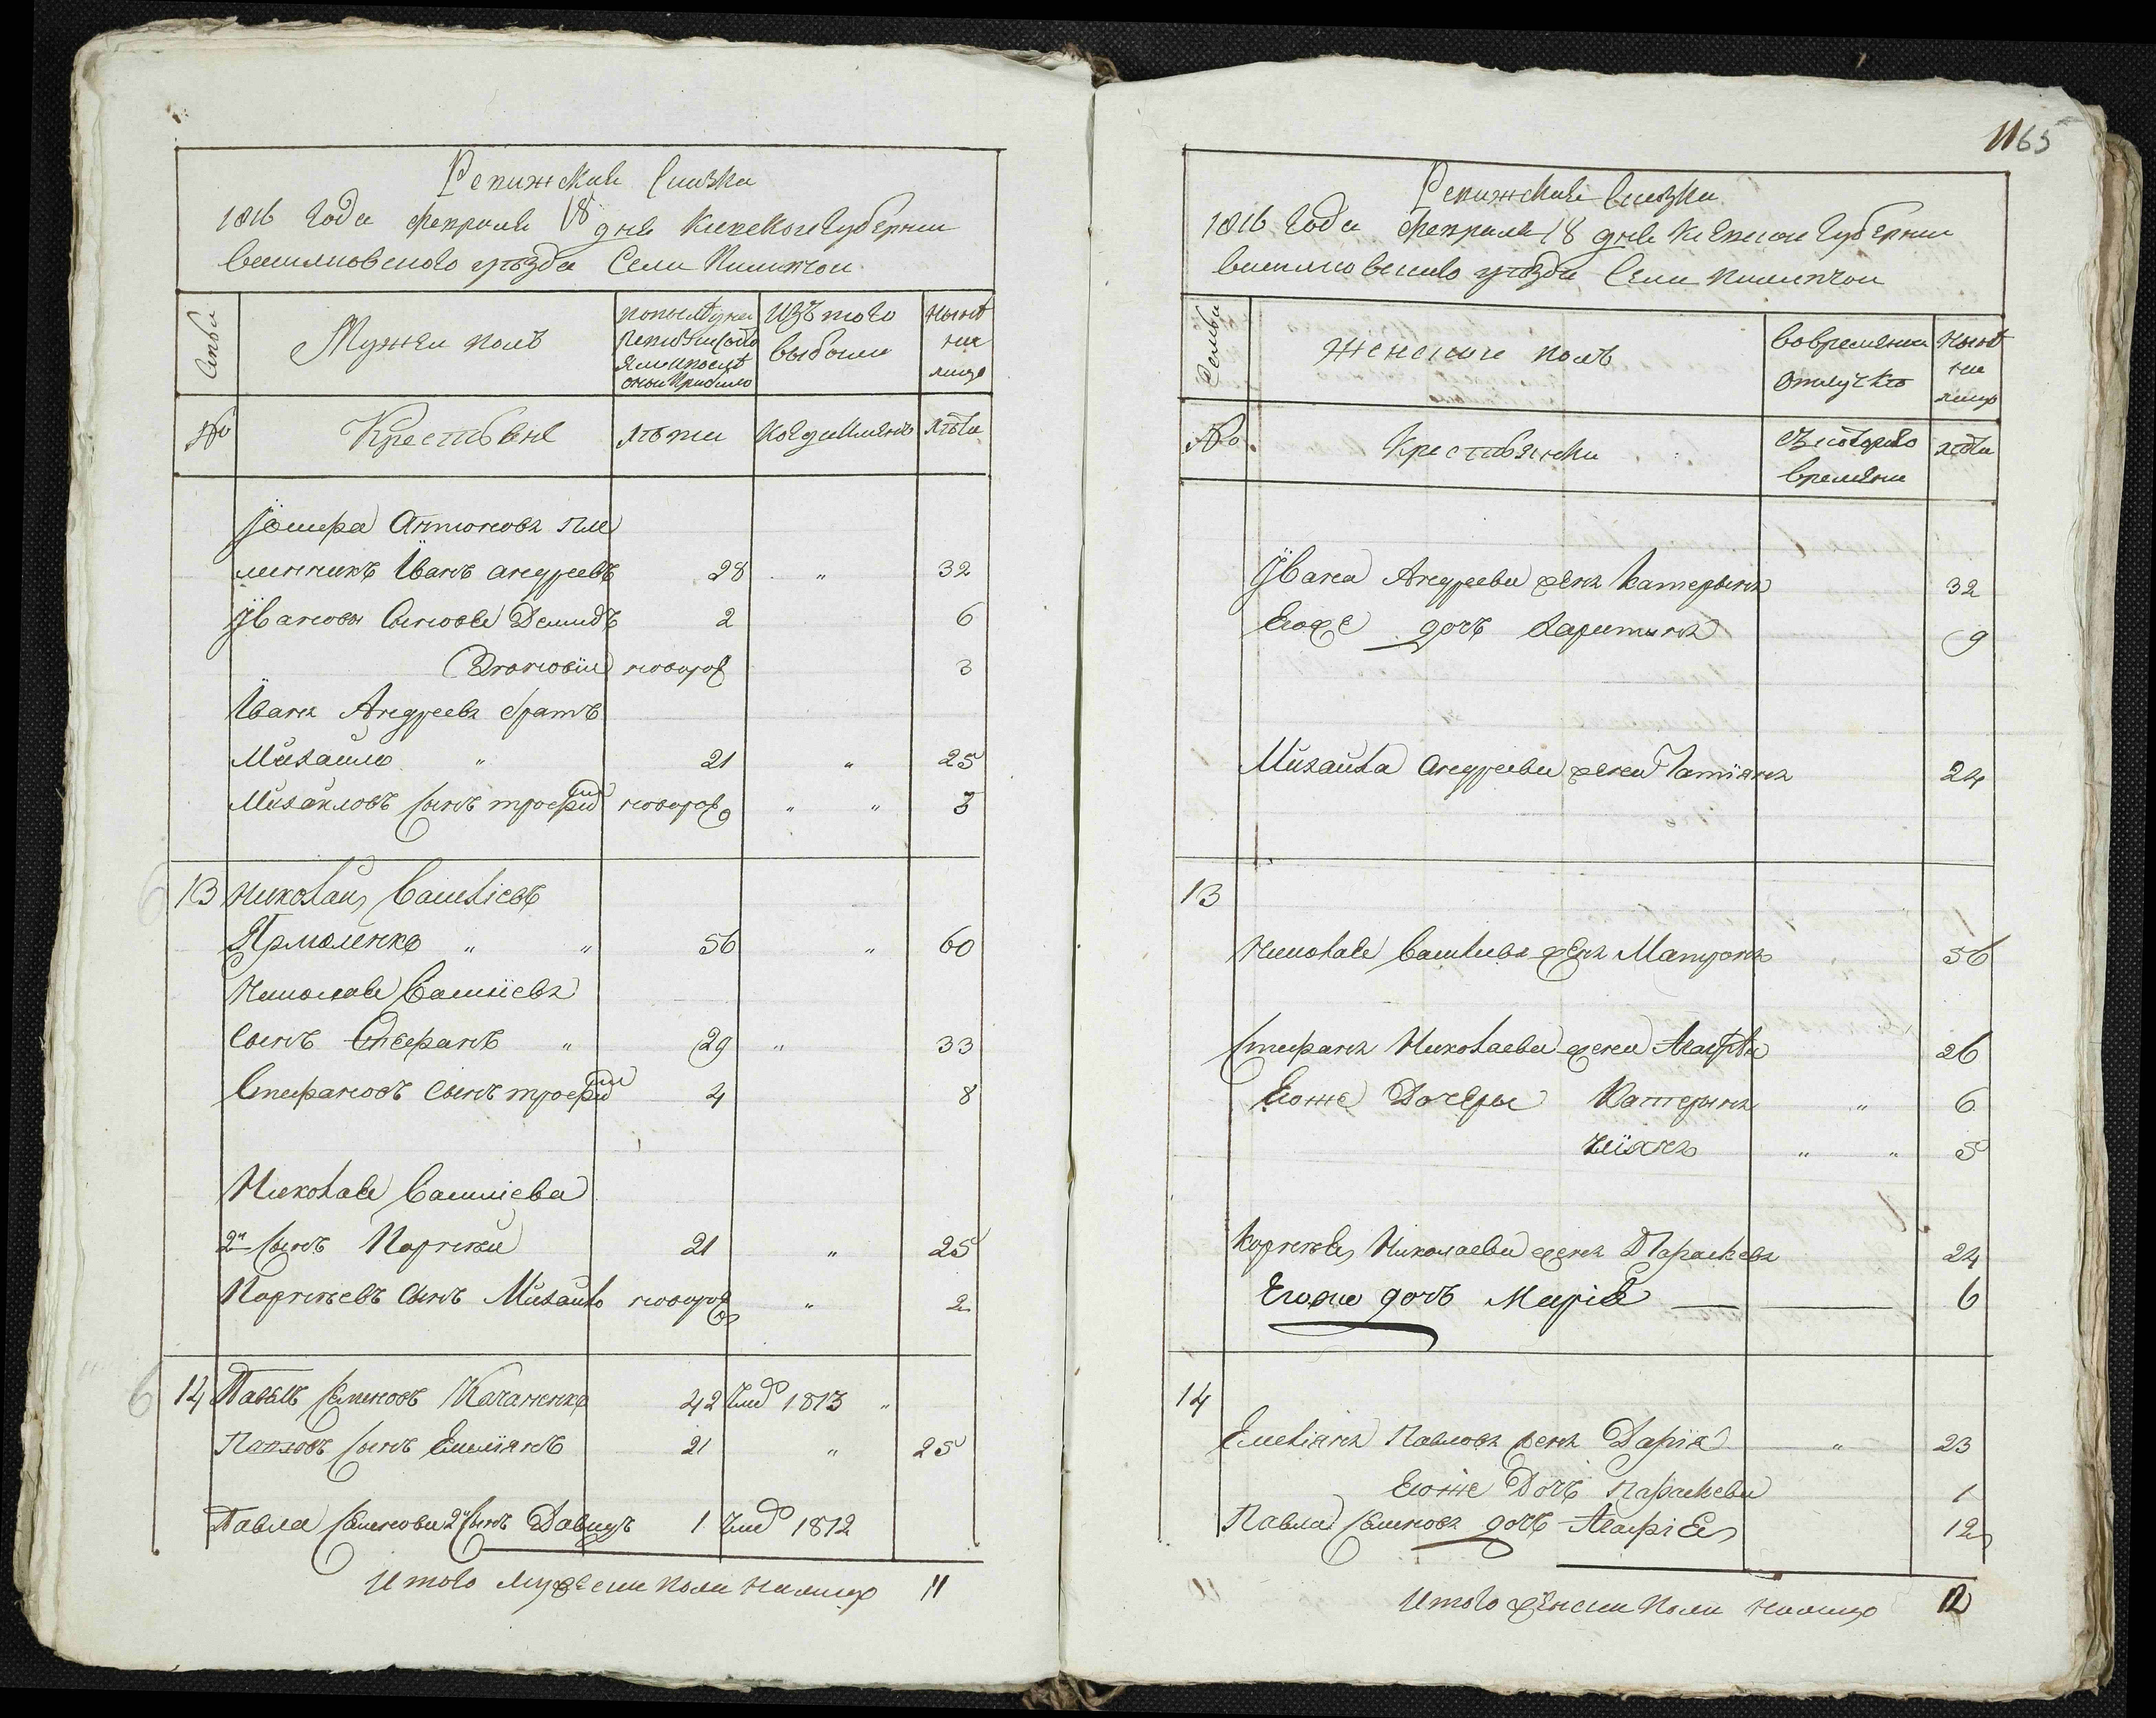 Ревижская Сказка
1816 Года Февраля 18 дня Киевской Губернии
Василковского уезда Села
Семьи
Мужеск полъ
Изъ того
выбыли
Ныне
на
лицо
№
Крестьяне
лѣты
Когда имянно
лѣта
Антонова пле
менникъ Иванъ андреевъ 28 " 32
Ивановы Сыновья Демидъ 2 6
новорож 3
Ивана Андреева братъ
Михайло " 21 " 25
Михайловъ сынъ трофим новорож " " 3
13 Николай Василіевъ
Ярмоленко " " 56 " 60
Николая Василіева
сынъ Стефанъ " 29 " 33
Стефановъ сынъ трофим 4 8
Николая Василіева
2й сынъ Корней 21 " 25
Корнеевъ сынъ Михайло новорож " 2
14 Павелъ Семеновъ Качаненко 42 умр 1813 "
Павловъ сынъ Емелиянъ 21 " 25
Павла Семенова 2й сынъ Давидъ 1 умр 1812
Итого мужеска пола налицо 11
1165
Ревижская Сказка
1816 Года Февраля 18 дня Киевской Губернии
Василковского уезда Села
Семьи
Женскои полъ
Вовременной
отлучке
Ныне
на
лицо
№
Крестьянки
Съ которого
времяни
лѣта
Ивана Андреева жена Катерына 32
Егоже дочь Харитына 9
Михайла андреева жена Татіяна 24
13
Николая Василива жена Матрона 56
Стефана Николаева жена Агафія 26
Егоже Дочеры Катерына " 6
Уліяна " " 5
Корнея Николаева жена Параскева 24
Егоже дочь Марія 6
14
Емеліяна Павлова жена Дарія " 23
Егоже Дочь Параскева 1
Павла Семенова дочь Агафія 12
Итого женска пола налицо 12